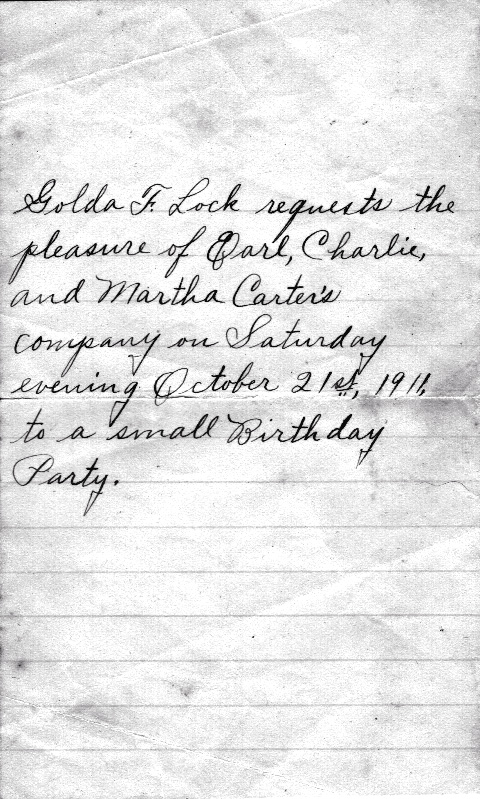 Golda F. Lock requests the
pleasure of Earl, Charlie,
and Martha Carter's
company on Saturday
evening October 21st, 1911,
to a small Birthday
Party.